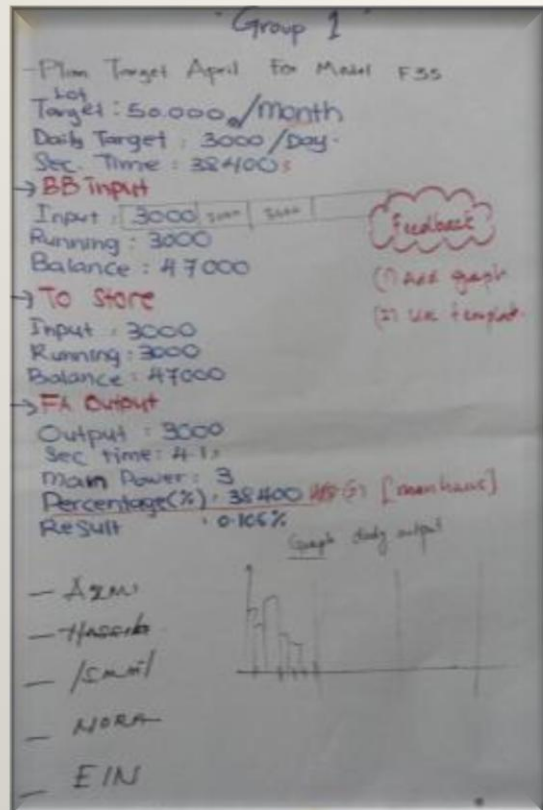 Group 1
- Plan Target April For Model F35
Lot
Target : 50.000 /month
Daily Target : 3000 /Day.
Sec. Time : 38400s
→ BB input
Input : 3000 3000 3000
Running : 3000
Balance : 47000
Feedback
(1) Add graph
(2) Use templat.
→ To Store
Input : 3000
Running : 3000
Balance : 47000
→ FA Output
Output : 3000
Sec time : 4.1s
Main Power : 3
Percentage(%) : 38400 [manhours]
Result : 0.106%
Graph daily output
- Azmi
-
- /smail
- NORA
- EIN